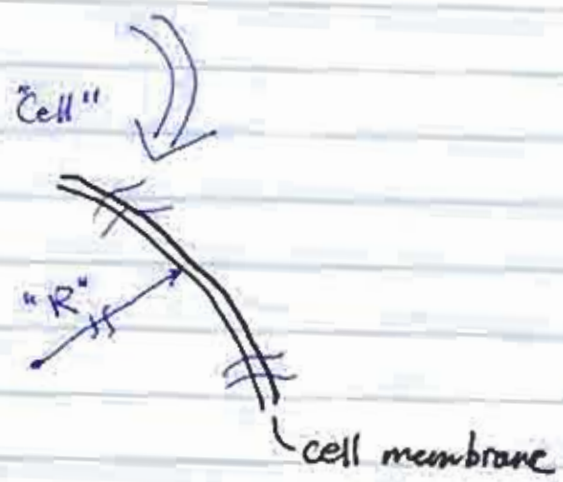 "Cell"
"R"
cell membrane